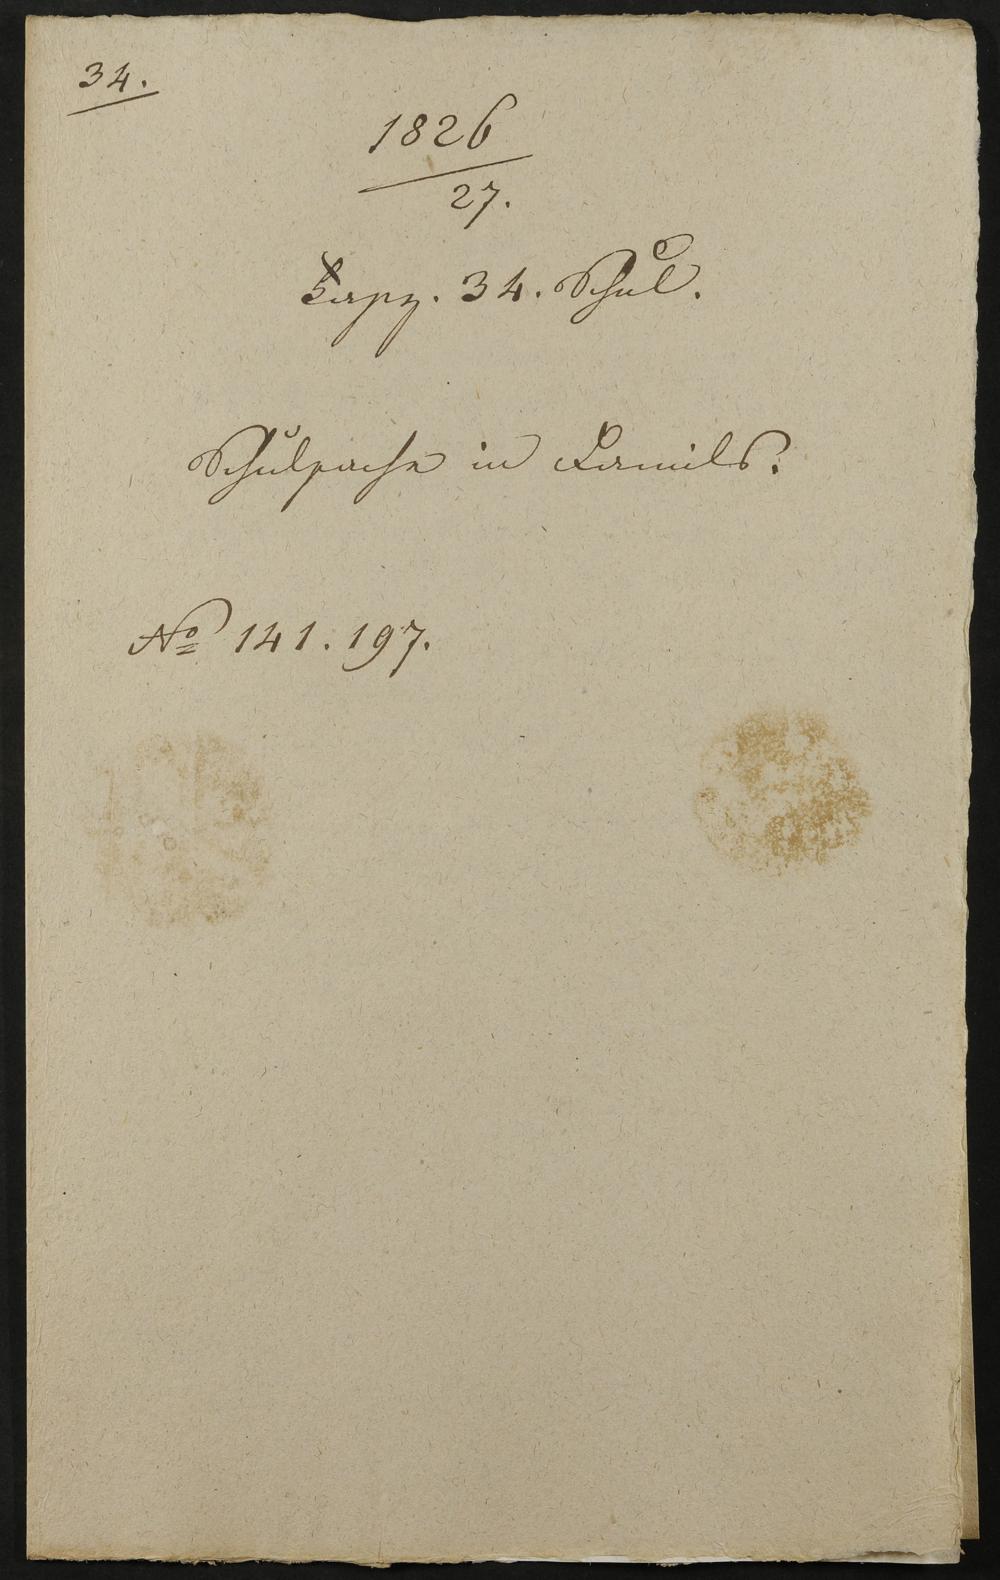 34.
1826
27.
34. Schul.
Schulsache in Lamils.
No 141. 197.